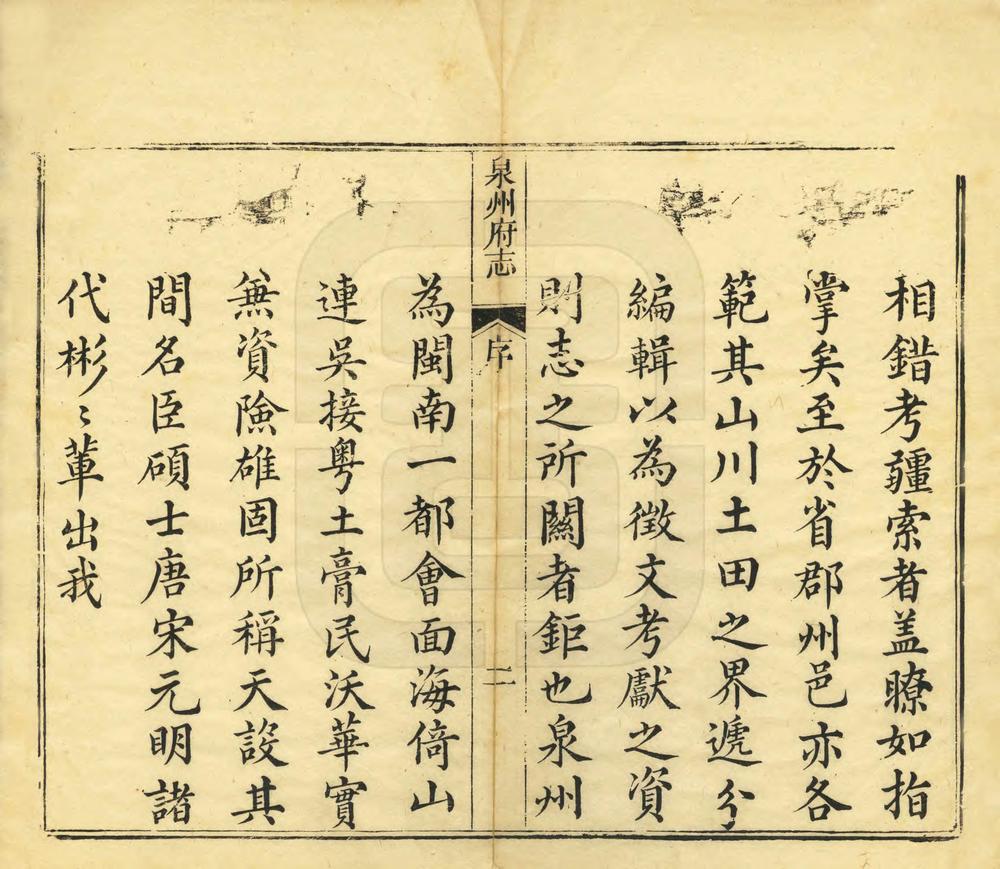 相錯考疆索者盖瞭如指
掌矣至於省郡州邑亦各
範其山川土田之界遞分
編輯以為徵文考獻之資
則志之所關者鉅也泉州
泉州府志
序
二
為閩南一都會面海倚山
連吳接粵土膏民沃華實
無資險雄固所稱天設其
間名臣碩士唐宋元明諸
代彬〻輩出我